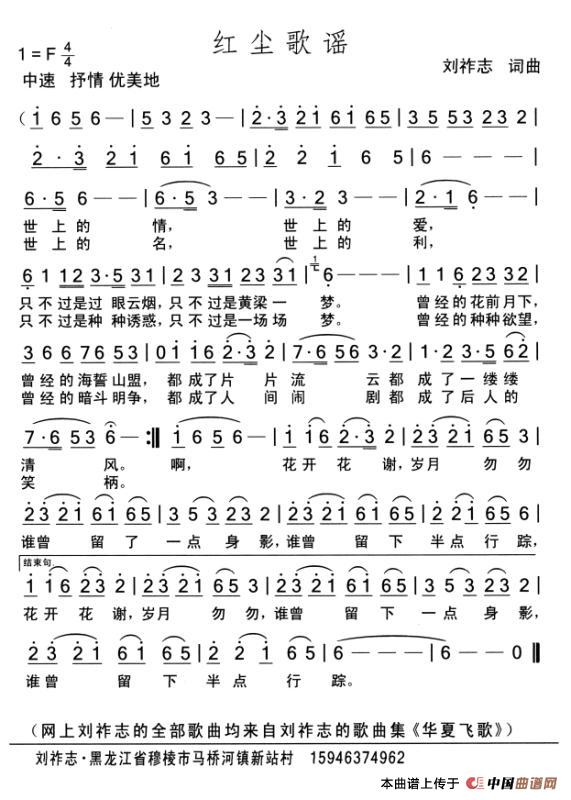 红尘歌谣
1=F 4/4
中速 抒情 优美地
刘祚志 词曲
(1 6 5 6 — | 5 3 2 3 — | 2·3 21 61 65 | 53 53 23 2 |
2·3 21 61 65 | 22 21 6 5 | 6 — — — |
6·5 6 — — | 6·5 3 — — | 3·2 3 — — | 2·1 6 — — |
世上的 情， 世上的 爱，
世上的 名， 世上的 利，
61 123 3·5 31 | 2 231 223 31 | 6 — — — | 1 16 23 32 |
只不过是过 眼云烟，只不过是黄梁一 梦。 曾经的花前月下，
只不过是种 种诱惑，只不过是一场场 梦。 曾经的种种欲望，
3 6 6 76 53 | 01 16 2·3 | 7·6 56 3·2 | 1·2 3·5 62 |
曾经的海誓山盟， 都成了片 片流 云都 成了一缕缕
曾经的暗斗明争， 都成了人 间闹 剧都 成了后人的
7·6 53 6 — :| 1 6 5 6 — | 1 16 2·3 2 | 23 21 65 3 |
清 风。 啊， 花开 花 谢，岁月 匆匆
笑 柄。
23 21 61 65 | 3 53 23 2 | 23 21 61 65 | 2 21 65 6 |
谁曾 留 了 一点 身 影，谁曾 留 下 半点 行 踪，
结束句
1 16 23 2 | 23 21 65 3 | 23 21 61 65 | 3 53 23 2 |
花开 花 谢，岁月 匆匆，谁曾 留 下 一点 身 影，
2 3 2 1 | 6 1 65 | 6 — — — | 6 — — 0 ||
谁曾 留 下 半点 行 踪。
（网上刘祚志的全部歌曲均来自刘祚志的歌曲集《华夏飞歌》）
刘祚志·黑龙江省穆棱市马桥河镇新站村 15946374962
本曲谱上传于 中国曲谱网